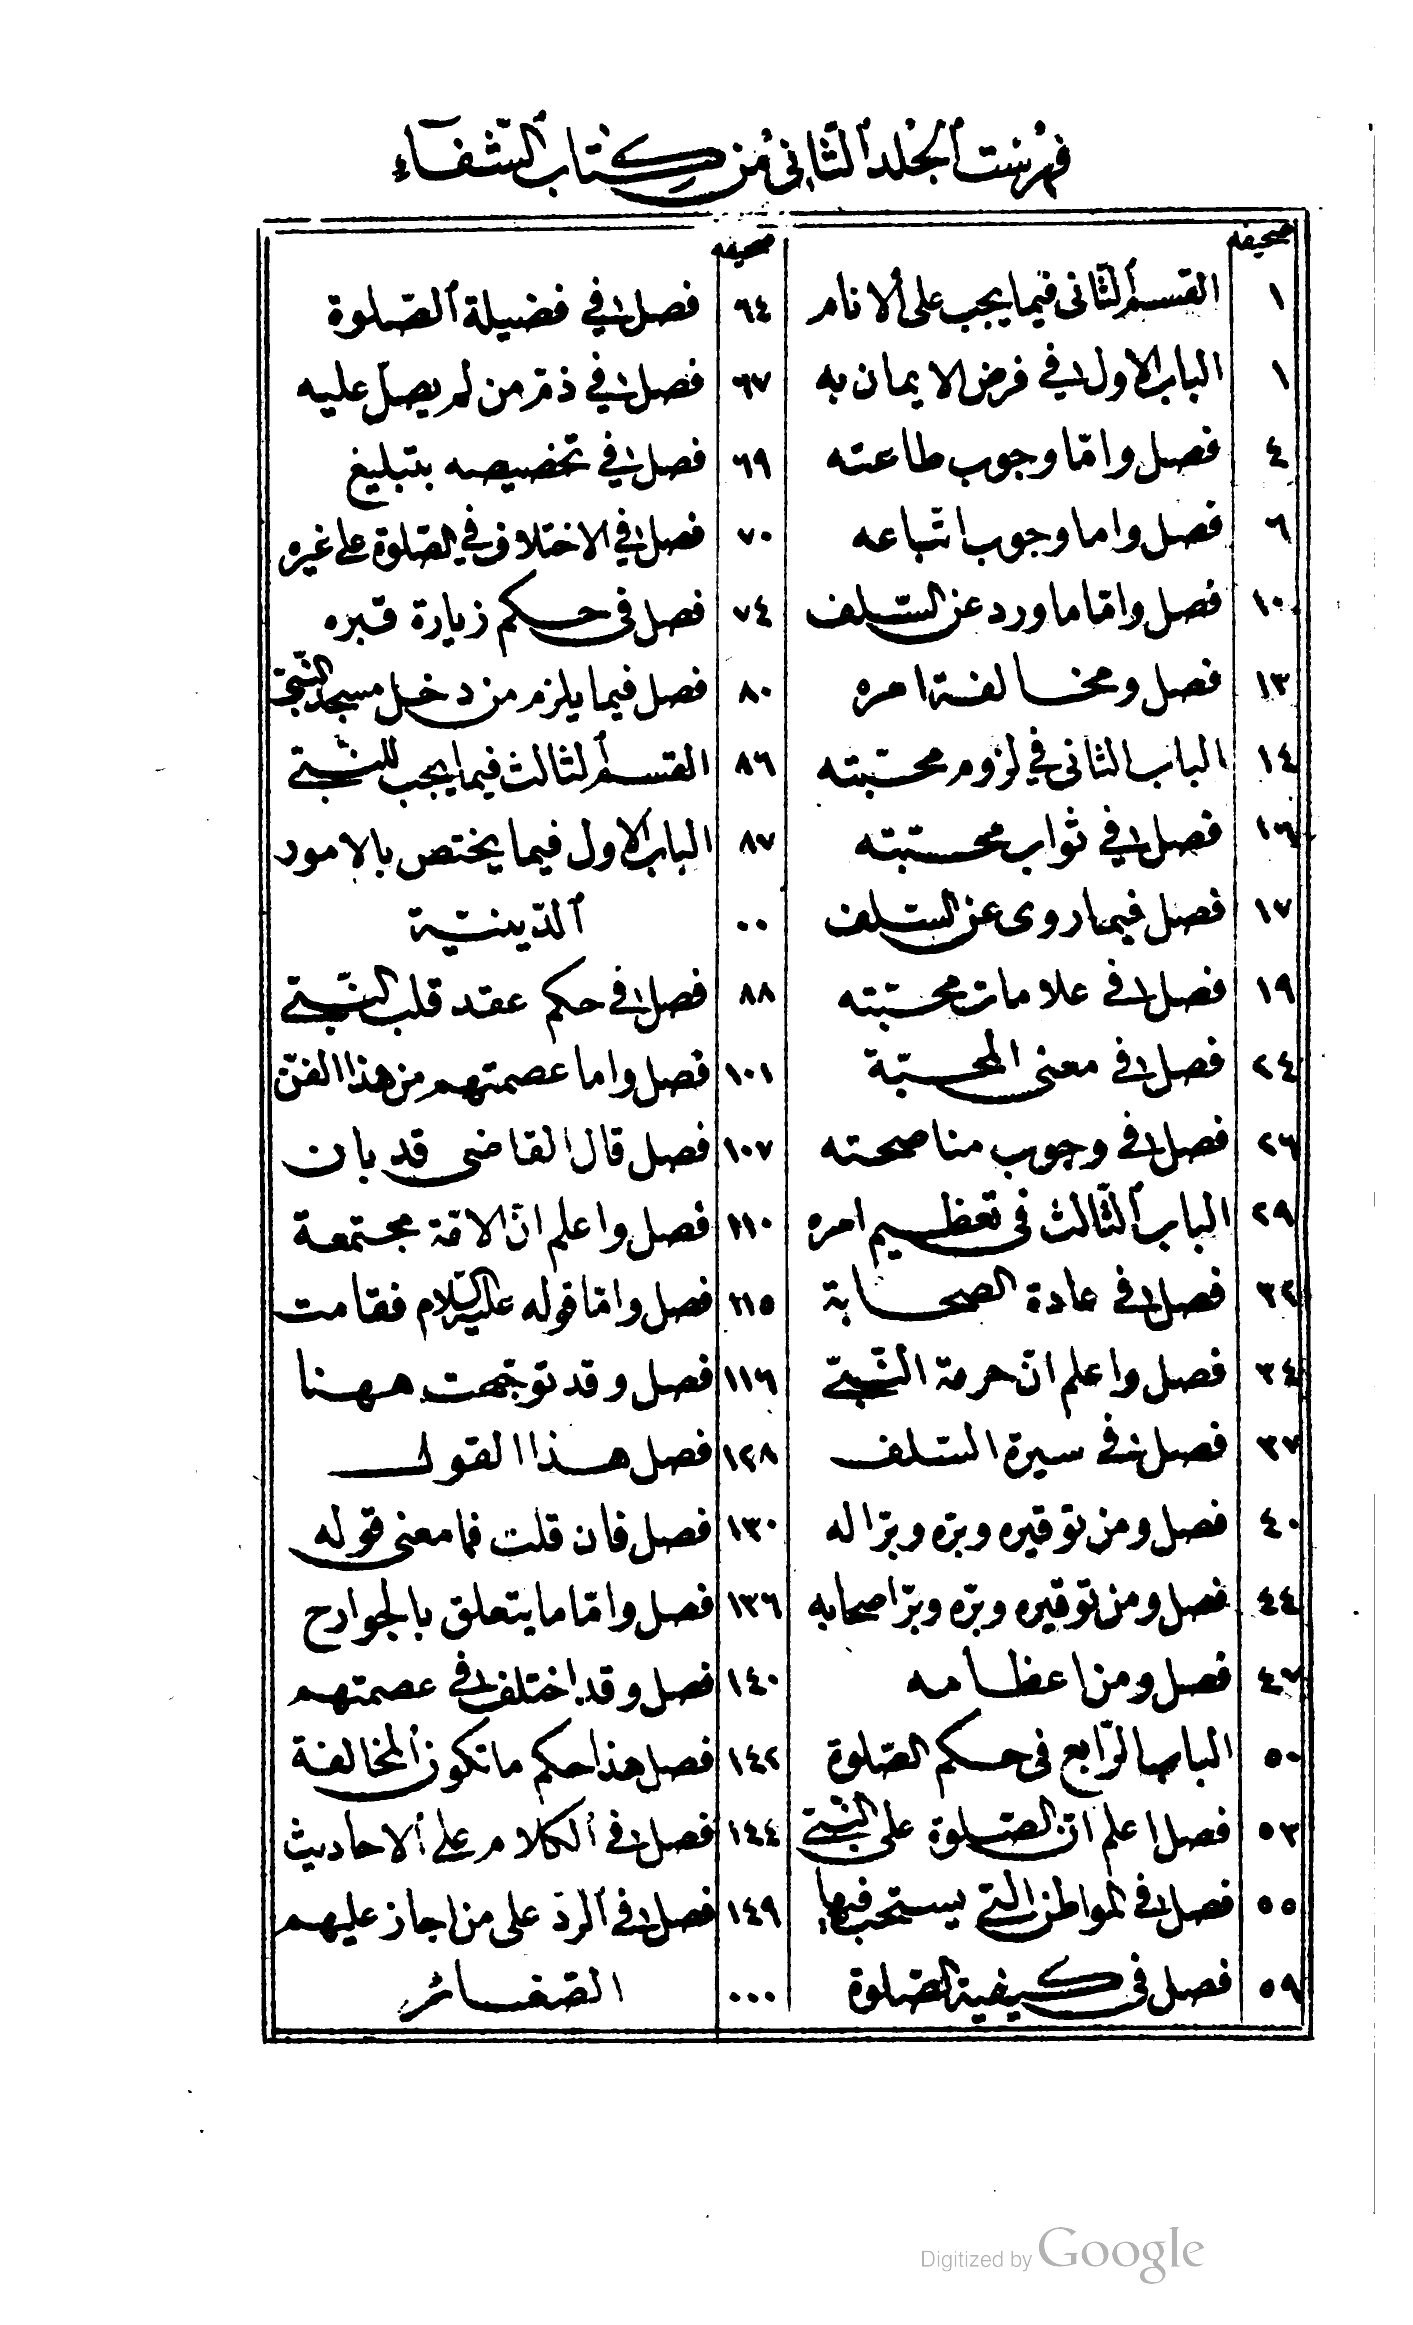 فهرست الجلد الثانى من كتاب الشفاء
صحيفه
١ القسم الثانى فيما يجب على الانام
١ الباب الاول فى فرض الايمان به
٤ فصل وامّا وجوب طاعته
٦ فصل واما وجوب اتّباعه
١٠ فصل وامّا ما ورد عن السّلف
١٣ فصل ومخالفة امره
١٤ الباب الثانى فى لزوم محبّته
١٦ فصل فى ثواب محبّته
١٧ فصل فيما روى عن السّلف
١٩ فصل فى علامات محبّته
٢٤ فصل فى معنى المحبّة
٢٦ فصل فى وجوب مناصحته
٢٩ الباب الثّالث فى تعظيم امره
٣٢ فصل فى عادة الصحابة
٣٤ فصل واعلم انّ حرمة النّبىّ
٣٧ فصل فى سيرة السّلف
٤٠ فصل ومن توقيره وبرّه وبرّ اله
٤٤ فصل ومن توقيره وبرّه وبرّ اصحابه
٤٧ فصل ومن اعظامه
٥٠ الباب الرّابع فى حكم الصّلوة
٥٣ فصل اعلم انّ الصّلوة على النّبىّ
٥٥ فصل فى المواطن التى يستحب فيها
٥٩ فصل فى كيفية الصّلوة
صحيفه
٦٤ فصل فى فضيلة الصّلوة
٦٧ فصل فى ذمّ من لم يصلّ عليه
٦٩ فصل فى تخصيصه بتبليغ
٧٠ فصل فى الاختلاف فى الصّلوة على غيره
٧٤ فصل فى حكم زيارة قبره
٨٠ فصل فيما يلزم من دخل مسجد النّبىّ
٨٦ القسم الثالث فيما يجب للنّبىّ
٨٧ الباب الاول فيما يختص بالامور
٠٠ الدّينيّة
٨٨ فصل فى حكم عقد قلب النّبىّ
١٠١ فصل واما عصمتهم من هذا الفنّ
١٠٧ فصل قال القاضى قد بان
١١٠ فصل واعلم انّ الامّة مجتمعة
١١٥ فصل وامّا قوله عليه السّلام فقامت
١١٦ فصل وقد توجّهت ههنا
١٢٨ فصل هذا القول
١٣٠ فصل فان قلت فما معنى قوله
١٣٦ فصل وامّا ما يتعلق بالجوارح
١٤٠ فصل وقد اختلف فى عصمتهم
١٤٢ فصل هذا حكم ما تكون المخالفة
١٤٤ فصل فى الكلام على الاحاديث
١٤٩ فصل فى الردّ على من اجاز عليهم
٠٠٠ الصّغائر
Digitized by Google